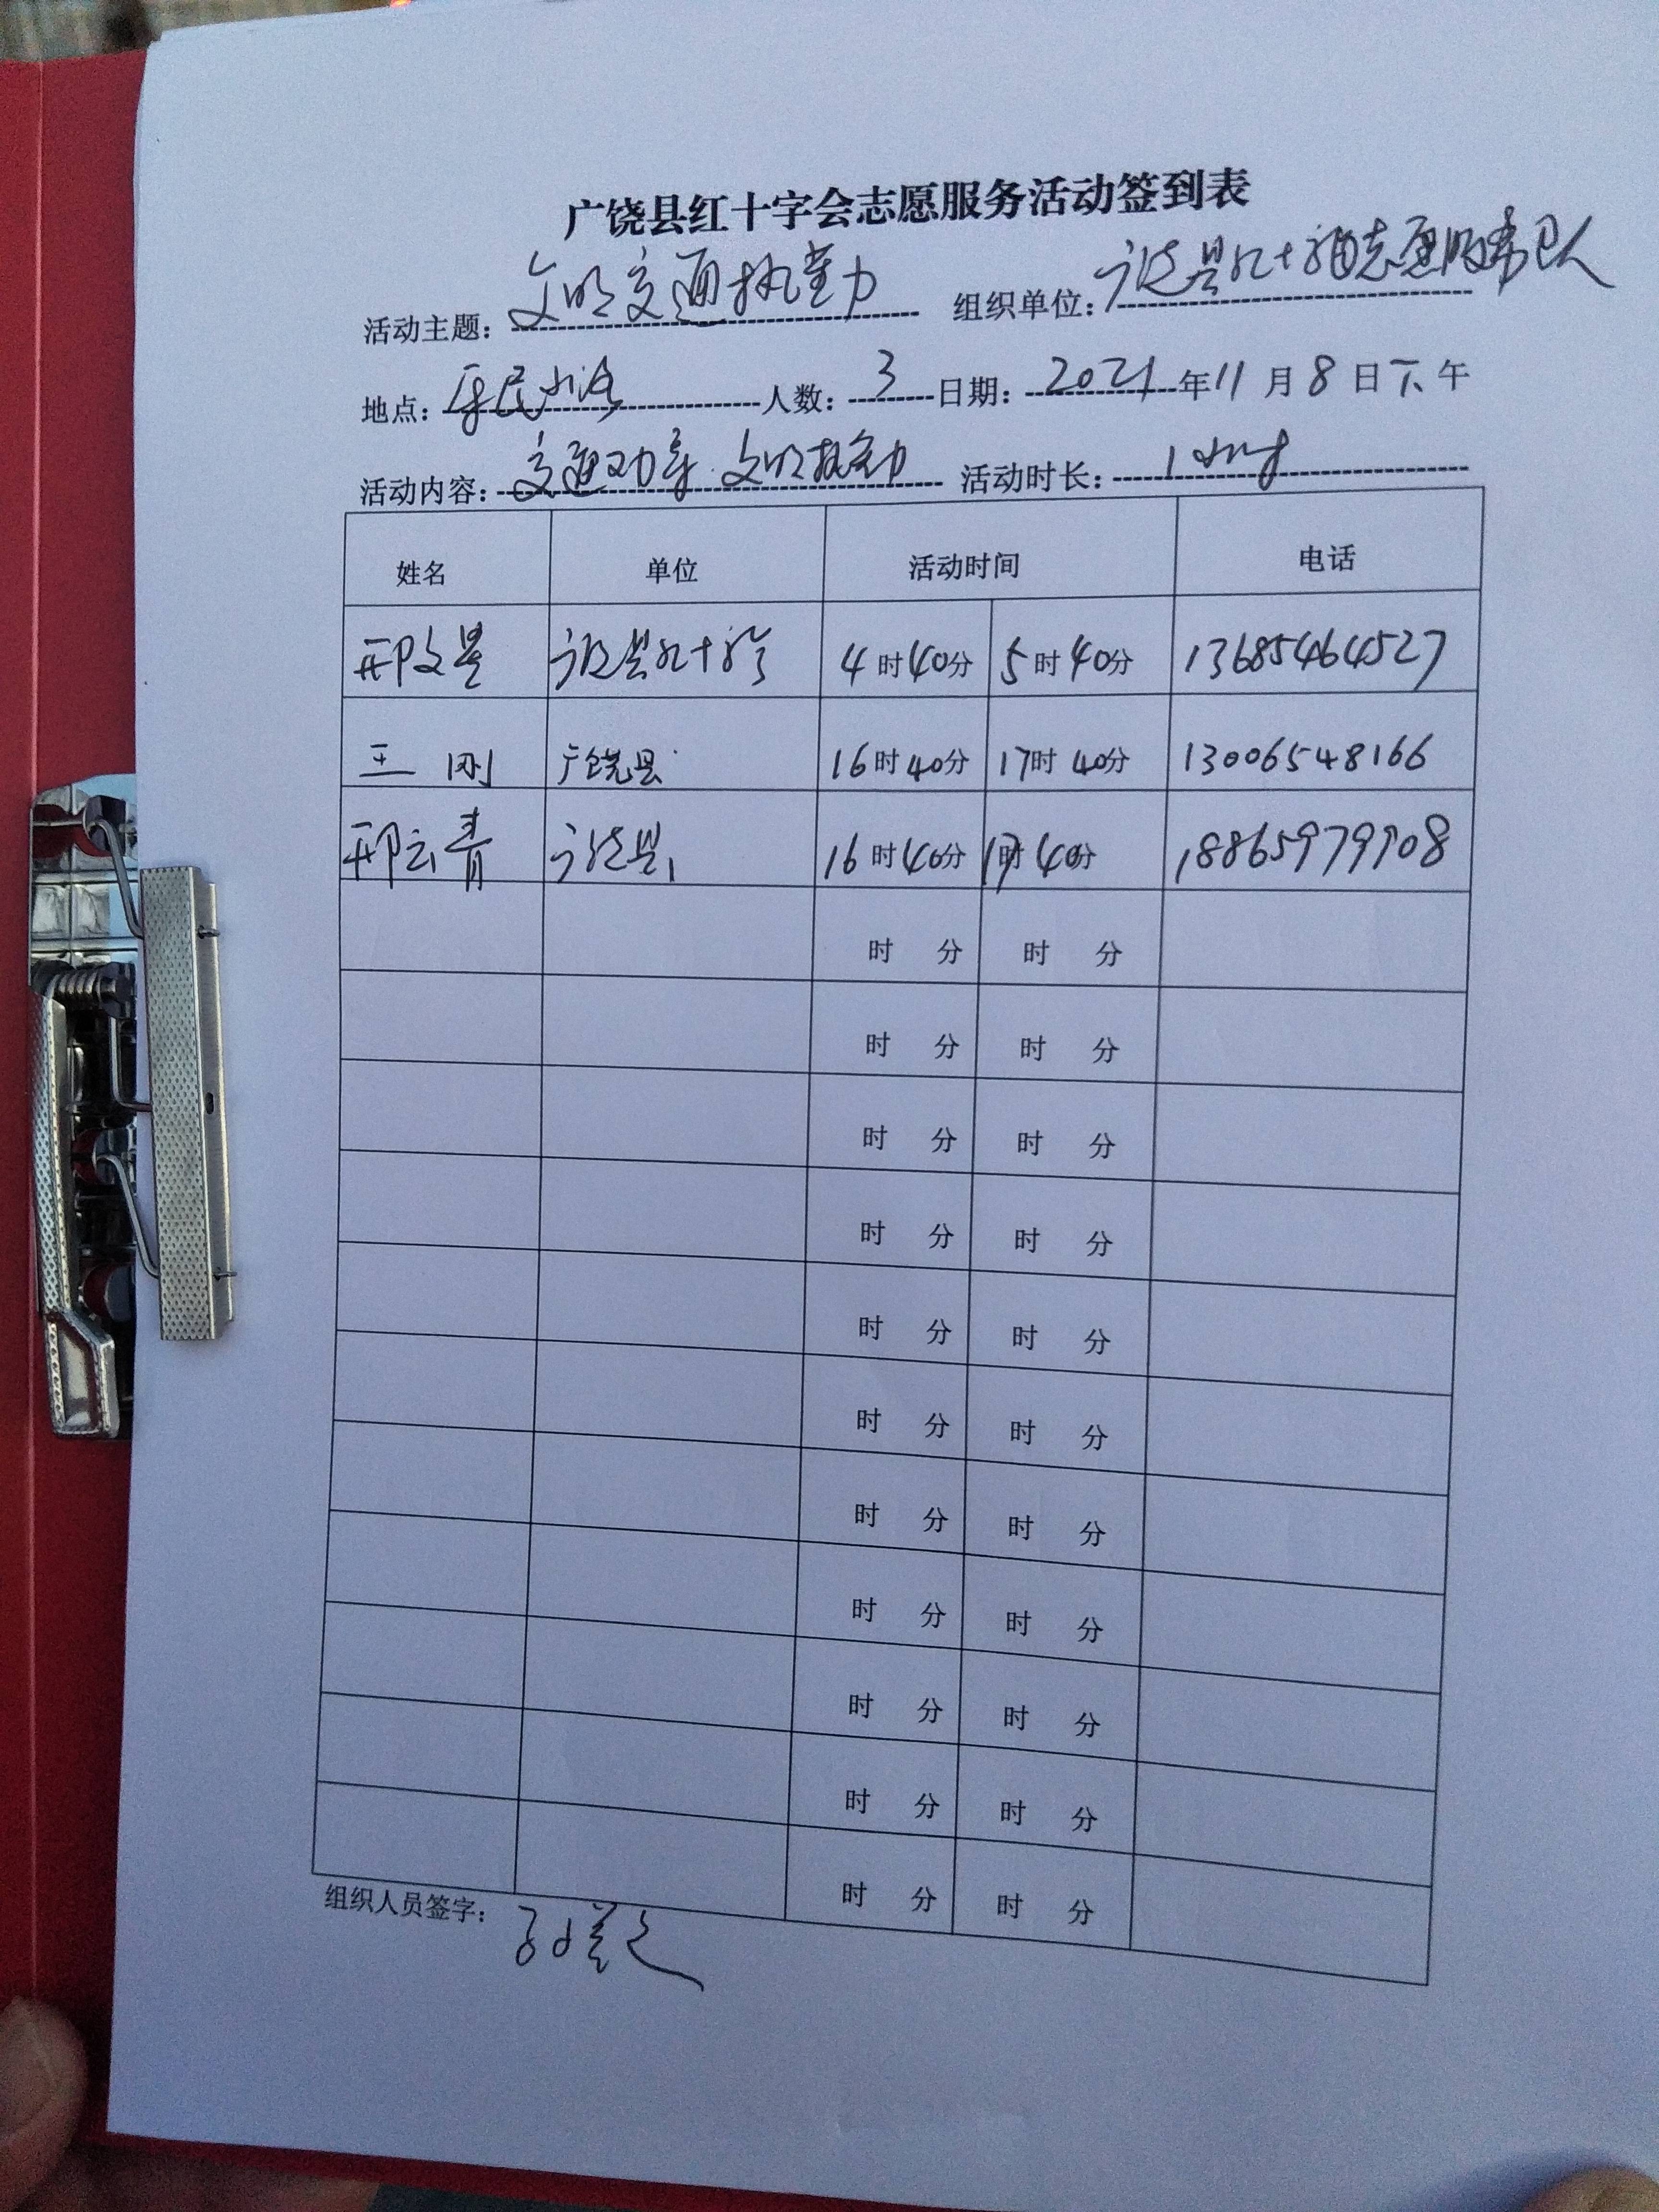 广饶县红十字会志愿服务活动签到表
活动主题： 文明交通执勤 组织单位： 广饶县红十字会志愿服务队
地点： 人数： 3 日期： 2021 年 11 月 8 日 下午
活动内容： 交通劝导 文明执勤 活动时长： 1小时
姓名 单位 活动时间 电话
邢文星 广饶县红十字会 4时40分 5时40分 13685464527
王刚 广饶县 16时40分 17时40分 13006548166
邢云青 广饶县 16时40分 17时40分 18865979908
时 分 时 分
时 分 时 分
时 分 时 分
时 分 时 分
时 分 时 分
时 分 时 分
时 分 时 分
时 分 时 分
时 分 时 分
时 分 时 分
时 分 时 分
组织人员签字：